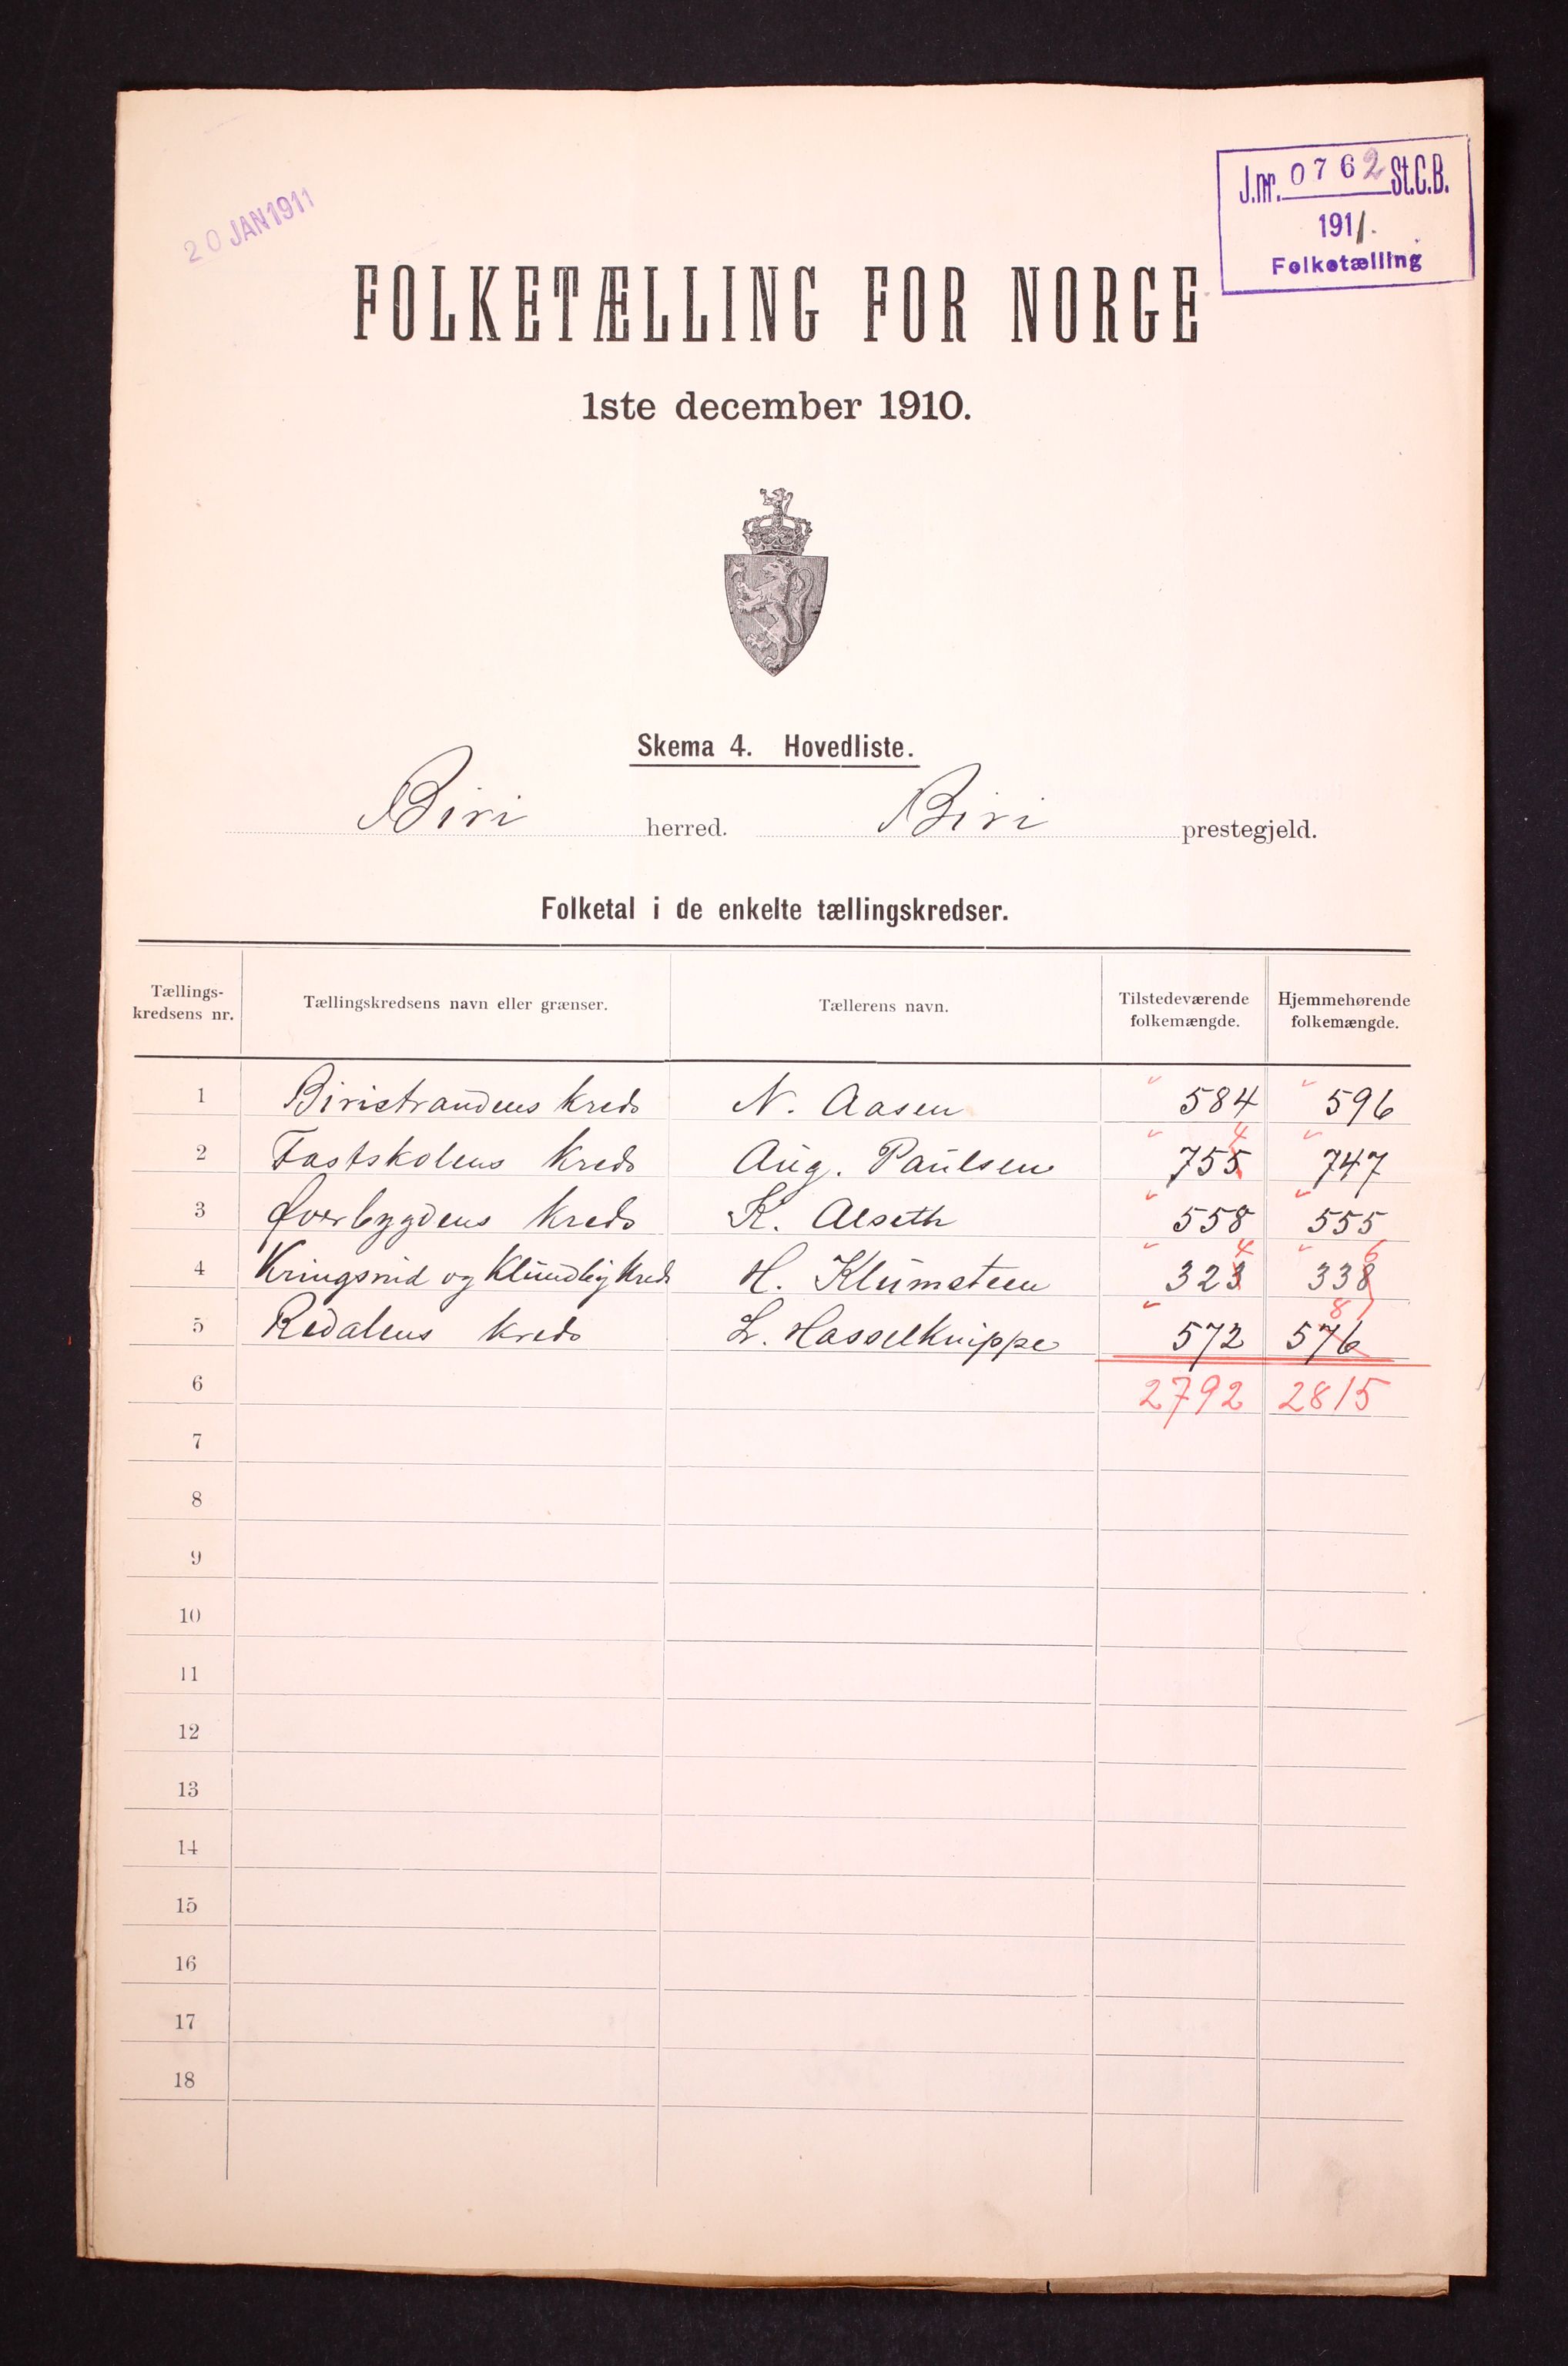 20 JAN 1911
J.nr. 0762 St.C.B.
1911.
Folketælling
FOLKETÆLLING FOR NORGE
1ste december 1910.
Skema 4. Hovedliste.
Biri herred. Biri prestegjeld.
Folketal i de enkelte tællingskredser.
Tællings-kredsens nr. Tællingskredsens navn eller grænser. Tællerens navn. Tilstedeværende folkemængde. Hjemmehørende folkemængde.
1 Biristrandens kreds N. Aasen 584 596
4
2 Fastskolens kreds Aug. Paulsen 755 747
3 Øverbygdens kreds K. Alseth 558 555
4 6
4 Kringsrud og Klundby kreds H. Klumsteen 323 338
81
5 Redalens kreds L. Hasselknippe 572 576
6 2792 2815
7
8
9
10
11
12
13
14
15
16
17
18